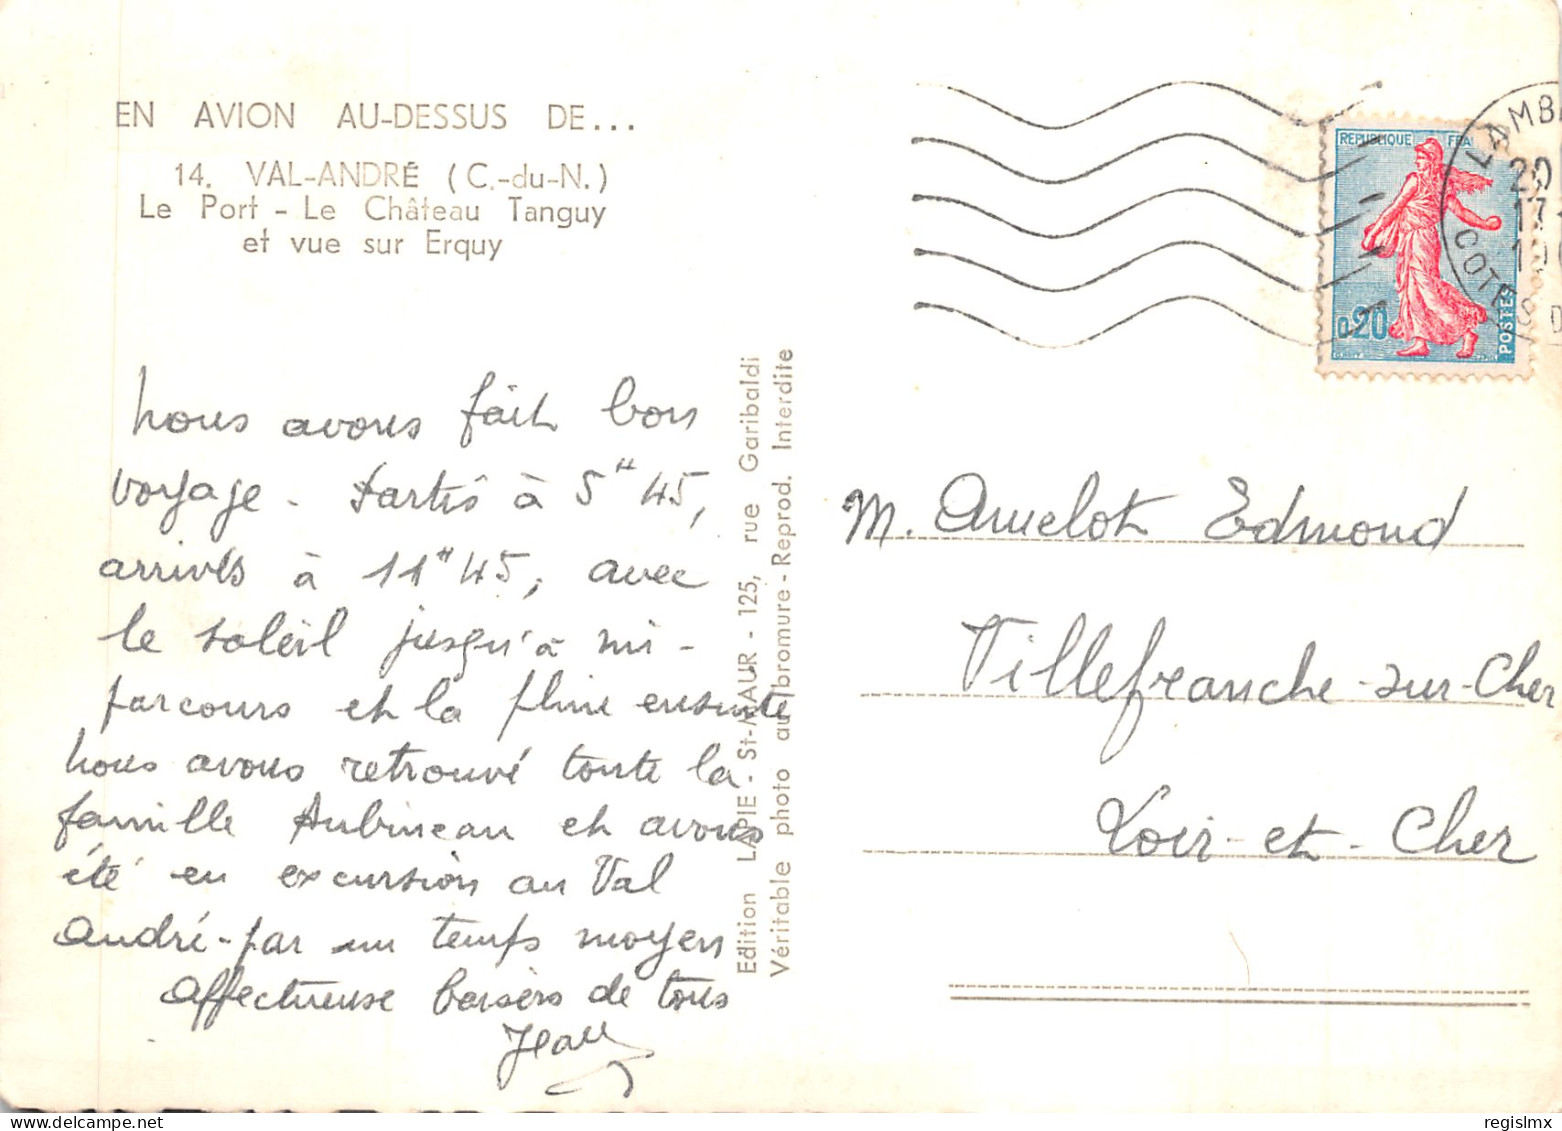 EN AVION AU-DESSUS DE...
14. VAL-ANDRÉ (C.-du-N.)
Le Port - Le Château Tanguy
et vue sur Erquy
Nous avons fait bon
voyage - Partis à 5H 45,
arrivés à 11H45, avec
le soleil jusqu'à mi-
parcours et la pluie ensuite
Nous avons retrouvé toute la
famille Aubineau et avons
été en excursion au Val
André - par un temps moyen
Affectueuse baisers de tous
Jean
Edition LAPIE - St-MAUR - 125, rue Garibaldi
Véritable photo au bromure - Reprod. Interdite
REPUBLIQUE FRA
0,20
POSTES
LAMBA
20
17-
COTES D
M. Amelot Edmond
Villefranche-sur-Cher
Loir-et-Cher
regislmx